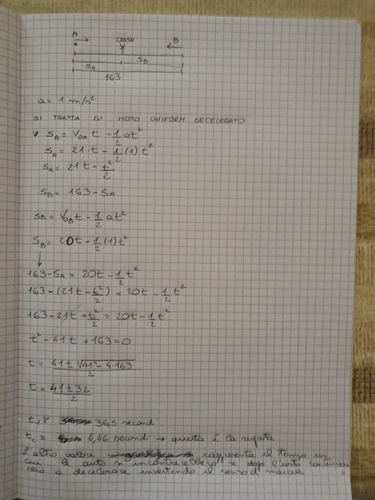 A B
SA SB
163
a = 1 m/s²
SI TRATTA DI MOTO UNIFORM DECELERATO
SA = V0A t - 1/2 at²
SA = 21·t - 1/2 (1) t²
SA = 21t - t²/2
SB = 163 - SA
SB = V0B t - 1/2 at²
SB = 20t - 1/2 (1) t²
163 - SA = 20t - 1/2 t²
163 - (21t - t²/2) = 20t - 1/2 t²
163 - 21t + t²/2 = 20t - 1/2 t²
t² - 41t + 163 = 0
t = 41 ± √41² - 4·163 / 2
t = 41 ± 32 / 2
t1 = 36,5 second
t2 = 4,46 second → questa è la risposta
L'altro valore rappresenta il tempo in
cui le auto si incontrerebbero se dopo l'urto continuassero
a decelerare invertendo il senso di marcia